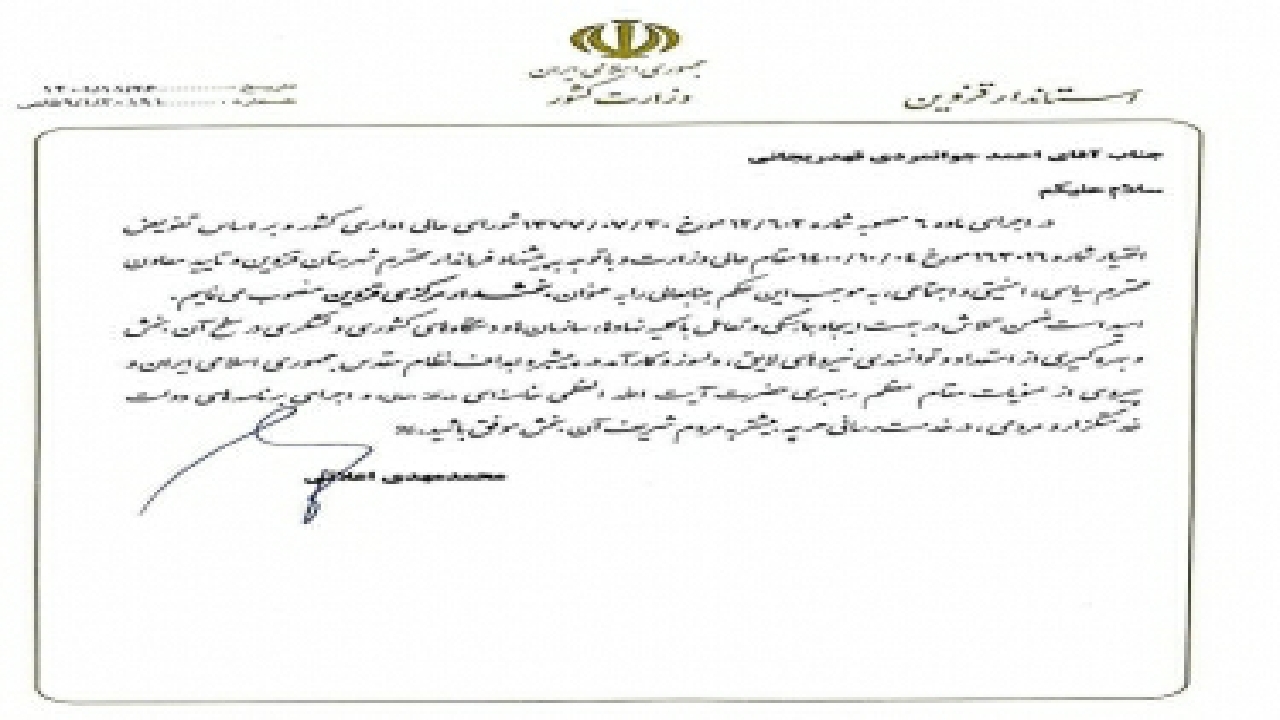 جمهوری اسلامی ایران
وزارت کشور
استاندار قزوین
تاریخ
شماره
جناب آقای احمد جوانمردی قهدریجانی
سلام علیکم
در اجرای ماده ۶ مصوبه شماره مورخ ۱۳۷۷/۰۷/۳۰ شورای عالی اداری کشور و بر اساس تفویض
اختیار شماره ۱۶۳۰۱۶ مورخ ۱۴۰۰/۱۰/۰۴ مقام عالی وزارت و با توجه به پیشنهاد فرماندار محترم شهرستان قزوین و تایید معاون
محترم سیاسی، امنیتی و اجتماعی، به موجب این حکم جنابعالی را به عنوان بخشدار مرکزی قزوین منصوب می نمایم.
امید است ضمن تلاش در جهت ایجاد هماهنگی و تعامل با کلیه نهادها، سازمان ها و دستگاه های کشوری و لشکری در سطح آن بخش
و بهره گیری از استعداد و توانمندی نیروهای لایق، دلسوز و کارآمد در پیشبرد اهداف نظام مقدس جمهوری اسلامی ایران و
پیروی از منویات مقام معظم رهبری حضرت آیت الله العظمی خامنه ای و اجرای برنامه های دولت
خدمتگزار و مردمی، در خدمت رسانی هر چه بیشتر به مردم شریف آن بخش موفق باشید.
محمدمهدی اعلایی